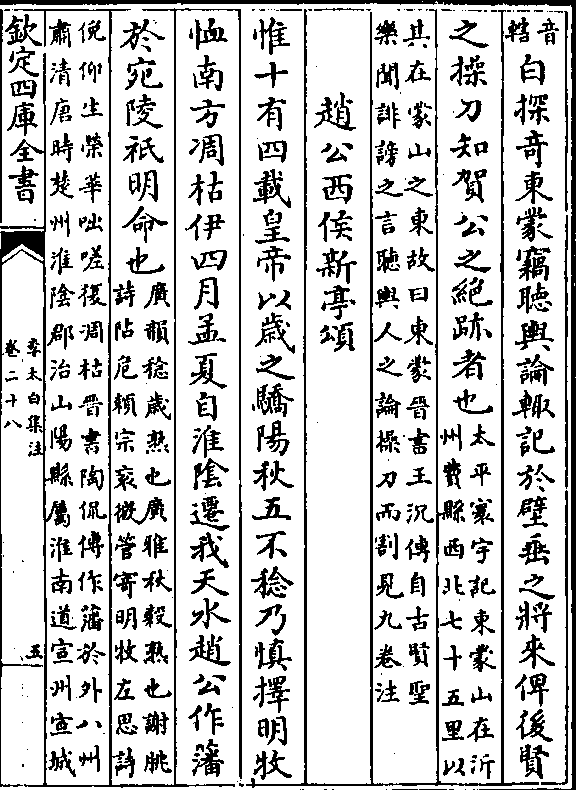 音
轄
白探奇東蒙竊聽輿論輙記於壁垂之將來俾後賢
之操刀知賀公之絕跡者也
太平寰宇記東蒙山在沂
州費縣西北七十五里以
其在蒙山之東故曰東蒙晉書王沉傳自古賢聖
樂聞誹謗之言聽輿人之論操刀而割見九卷注
趙公西侯新亭頌
惟十有四載皇帝以歲之驕陽秋五不稔乃慎擇明牧
恤南方凋枯伊四月孟夏自淮陰遷我天水趙公作藩
於宛陵祗明命也
廣韻稔歳熟也廣雅秋穀熟也謝朓
詩阽危賴宗衮微管寄明牧左思詩
俛仰生榮華咄嗟復凋枯晉書陶侃傳作藩於外八州
肅清唐時楚州淮陰郡治山陽縣屬淮南道宣州宣城
欽定四庫全書
李太白集注
卷二十八
五